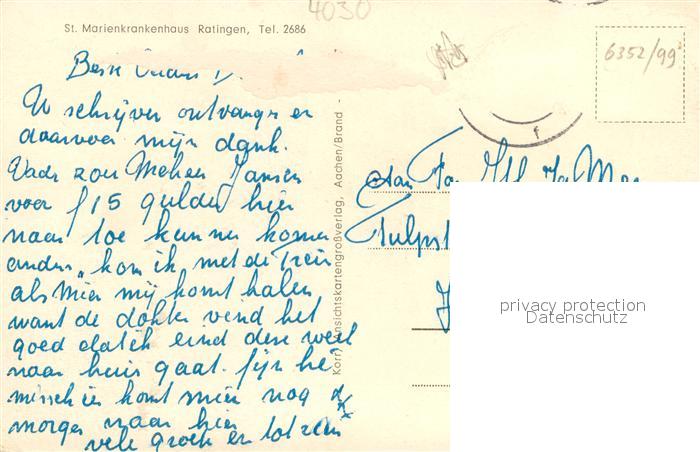 4030
St. Marienkrankenhaus Ratingen, Tel. 2686
6352/99
Beste
U schrijven ontvangen en
daarvoor mijn dank.
Vade zou Meneer Jansen
voor f 15 gulden hier
naar toe kunnen komen
anders kom ik met de Trein
als Mien mij komt halen
want de dokter vend het
goed dat ik eind deze week
naar huis gaat. fijn hé
misschien komt Mien nog
morgen naar hier
vele groeten en tot ziens
Korr) Ansichtskartengroßverlag, Aachen/Brand -
Aan Fam
Tulpst
privacy protection
Datenschutz